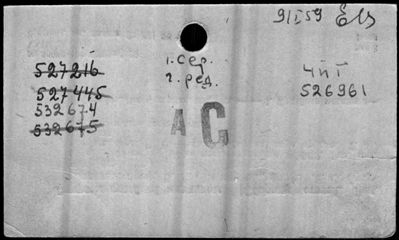 91 I 59
527216
527445
532674
532675
1. сер.
2. ред.
А С
ЧИТ
526961